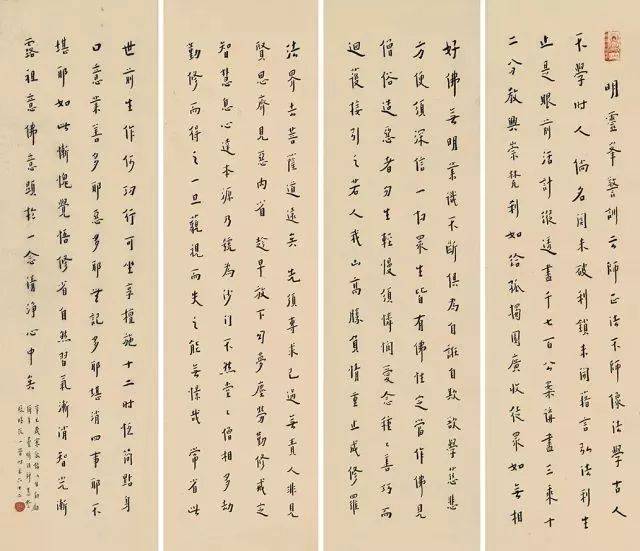 明霊峯警訓云師正法不師像法學古人
不學时人倘名関未破利鎖未開藉言弘法利生
止是眼前活計縱透盡千七百公案講盡三乘十
二分敎興崇梵刹如給孤獨園廣收徒眾如無相
好佛無明業識不斷俱為自誑自欺欲學慈悲
方便須深信一切眾生皆有佛性定當作佛見
僧俗造惡者勿生輕慢須憐憫愛念種〻善巧而
迴護接引之若人我山高勝負情重止成修羅
法界去菩薩道遠矣先須專求己過毋責人非見
賢思齊見惡內省趁早放下勾夢塵勞勤修戒定
智慧息心達本源乃號為沙门不然堂〻僧相多劫
勤修而得之一旦藐視而失之能無悚哉常省此
世前生作何功行可坐享檀施十二时恆簡點身
口意業善多耶惡多耶無記多耶堪消四事耶不
堪耶如此慚愧覺悟修省自然習氣漸消智光漸
露祖意佛意顯於一念清淨心中矣